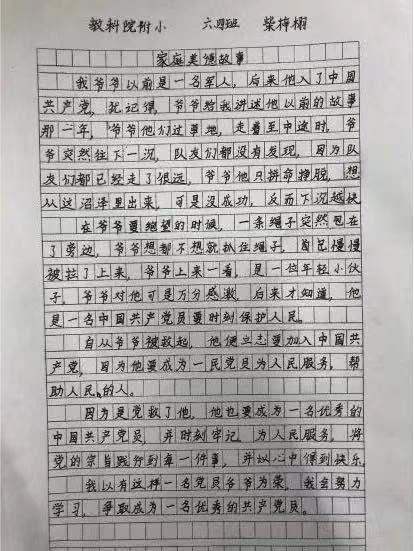 教科院附小 六四班 柴梓栩
家庭美德故事
我爷爷以前是一名军人，后来他入了中国
共产党，犹记得，爷爷给我讲述他以前的故事
那一年，爷爷他们过草地，走着至中途时，爷
爷突然往下一沉，队友们都没有发现，因为队
友们都已经走了很远，爷爷他只拼命挣脱，想
从这沼泽里出来，可是没成功，反而下沉越快
在爷爷要绝望的时候，一条绳子突然现在
了旁边，爷爷想都不想就抓住绳子，自己慢慢
被拉了上来，爷爷上来一看，是一位年轻小伙
子，爷爷对他可是万分感激，后来才知道，他
是一名中国共产党员要时刻保护人民。
自从爷爷被救起，他便立志要加入中国共
产党，因为他要成为一民党员为人民服务，帮
助人民的人。
因为是党救了他，他也要成为一名优秀的
中国共产党员，并时刻牢记，为人民服务，将
党的宗旨践行到每一件事，并以心中得到快乐
我以有这样一名党员爷爷为荣，我会努力
学习，争取成为一名优秀的共产党员。